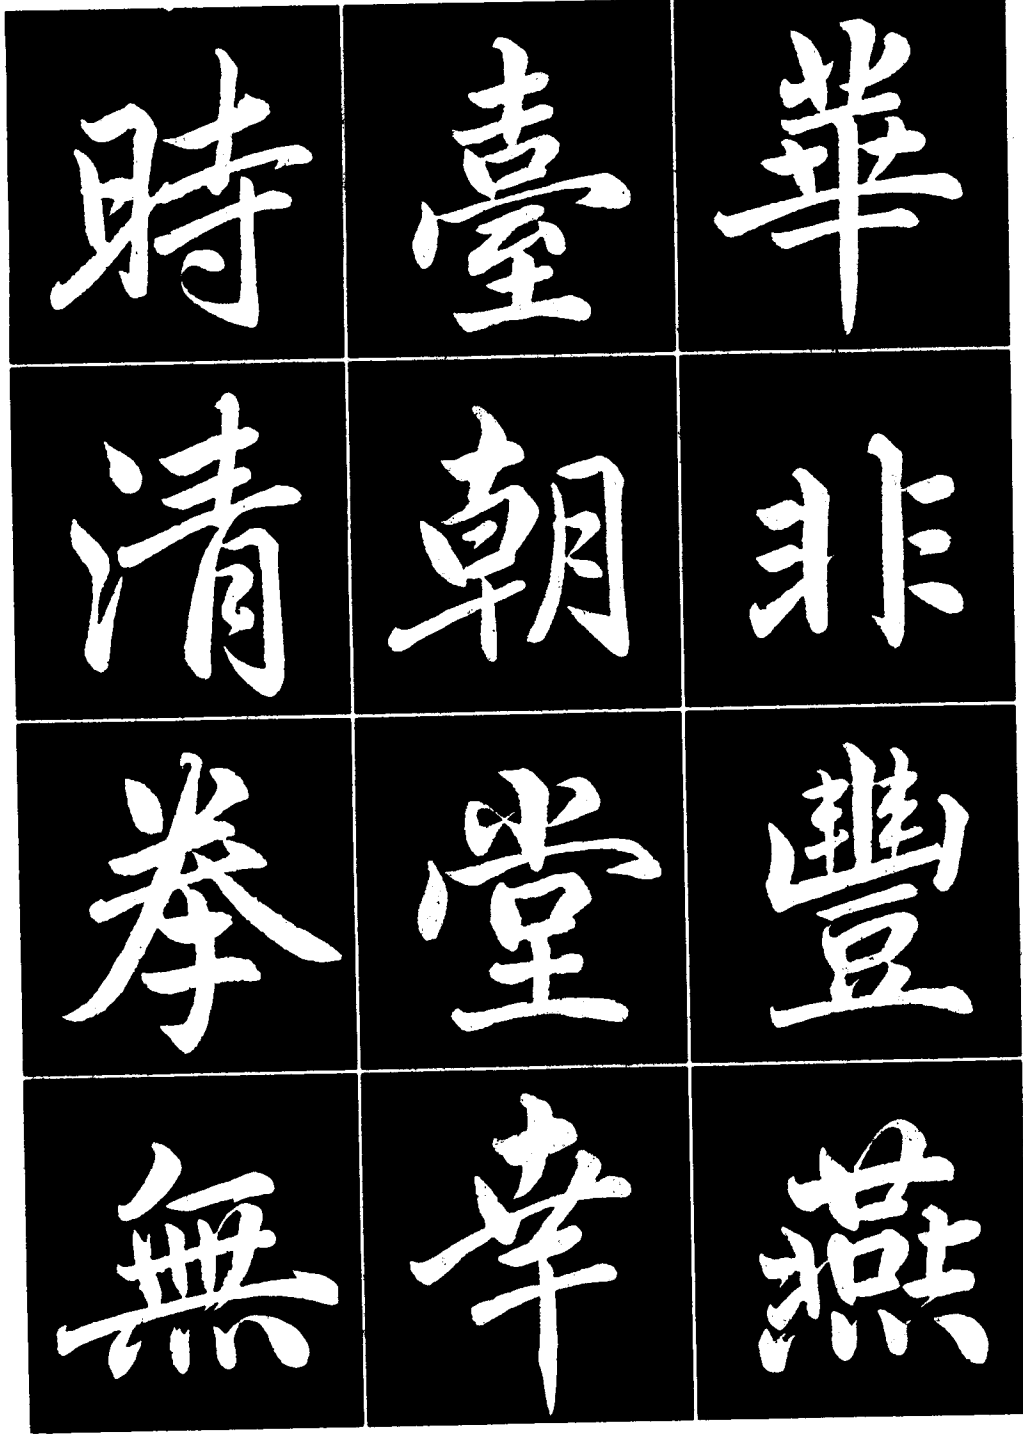 華非豐燕
臺朝堂幸
時清拳無